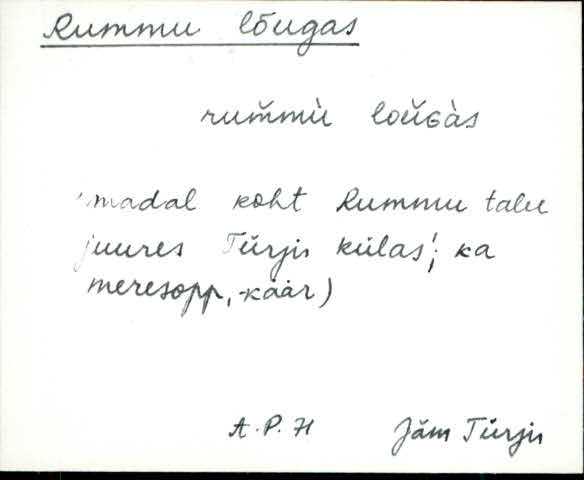 Rummu lõugas
rum̆mù loŭɢàs
'madal koht Rummu talu
juures Türjü külas'; ka
meresopp, -käär)
A.P.H Jäm Türjü